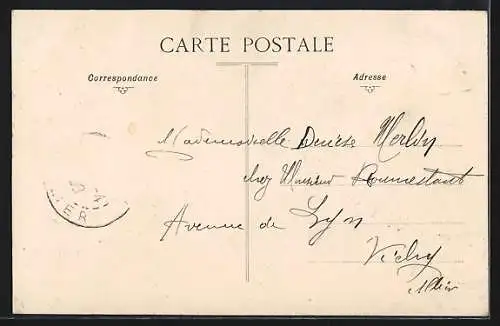 CARTE POSTALE
Correspondance
Adresse
Mademoiselle Denise
chez Monsieur Roumestant
Avenue de Lyon
Vichy
Allier